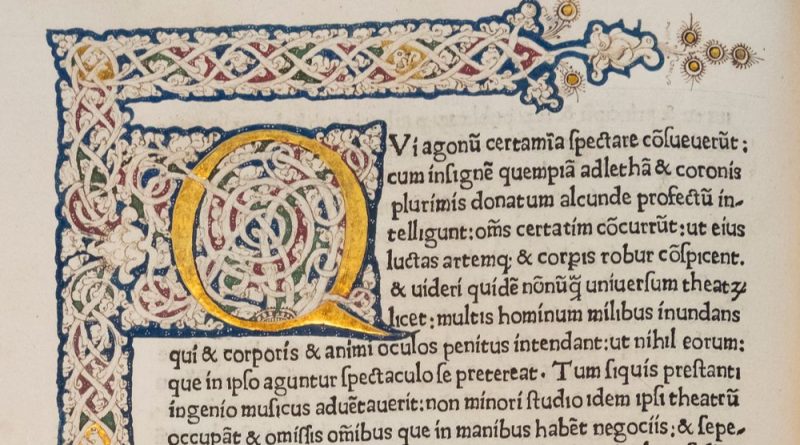 QVi agonū certamīa ſpectare cōſueuerūt:
cum inſignē quempiā adlethā & coronis
plurimis donatum alcunde profectū in-
telligunt: om̄s certatim cōcurrūt: ut eius
luctas artemq; & corꝑis robur cōſpicent.
& uideri quidē nōnūꝗ̃ uniuerſum theatꝝ
licet: multis hominum milibus inundans
qui & corporis & animi oculos penitus intendant: ut nihil eorum:
que in ipſo aguntur ſpectaculo ſe pretereat. Tum ſiquis preſtanti
ingenio muſicus aduētauerit: non minori ſtudio idem ipſi theatrū
occupāt & omiſſis om̄ibus que in manibus habēt negociis: & ſepe-